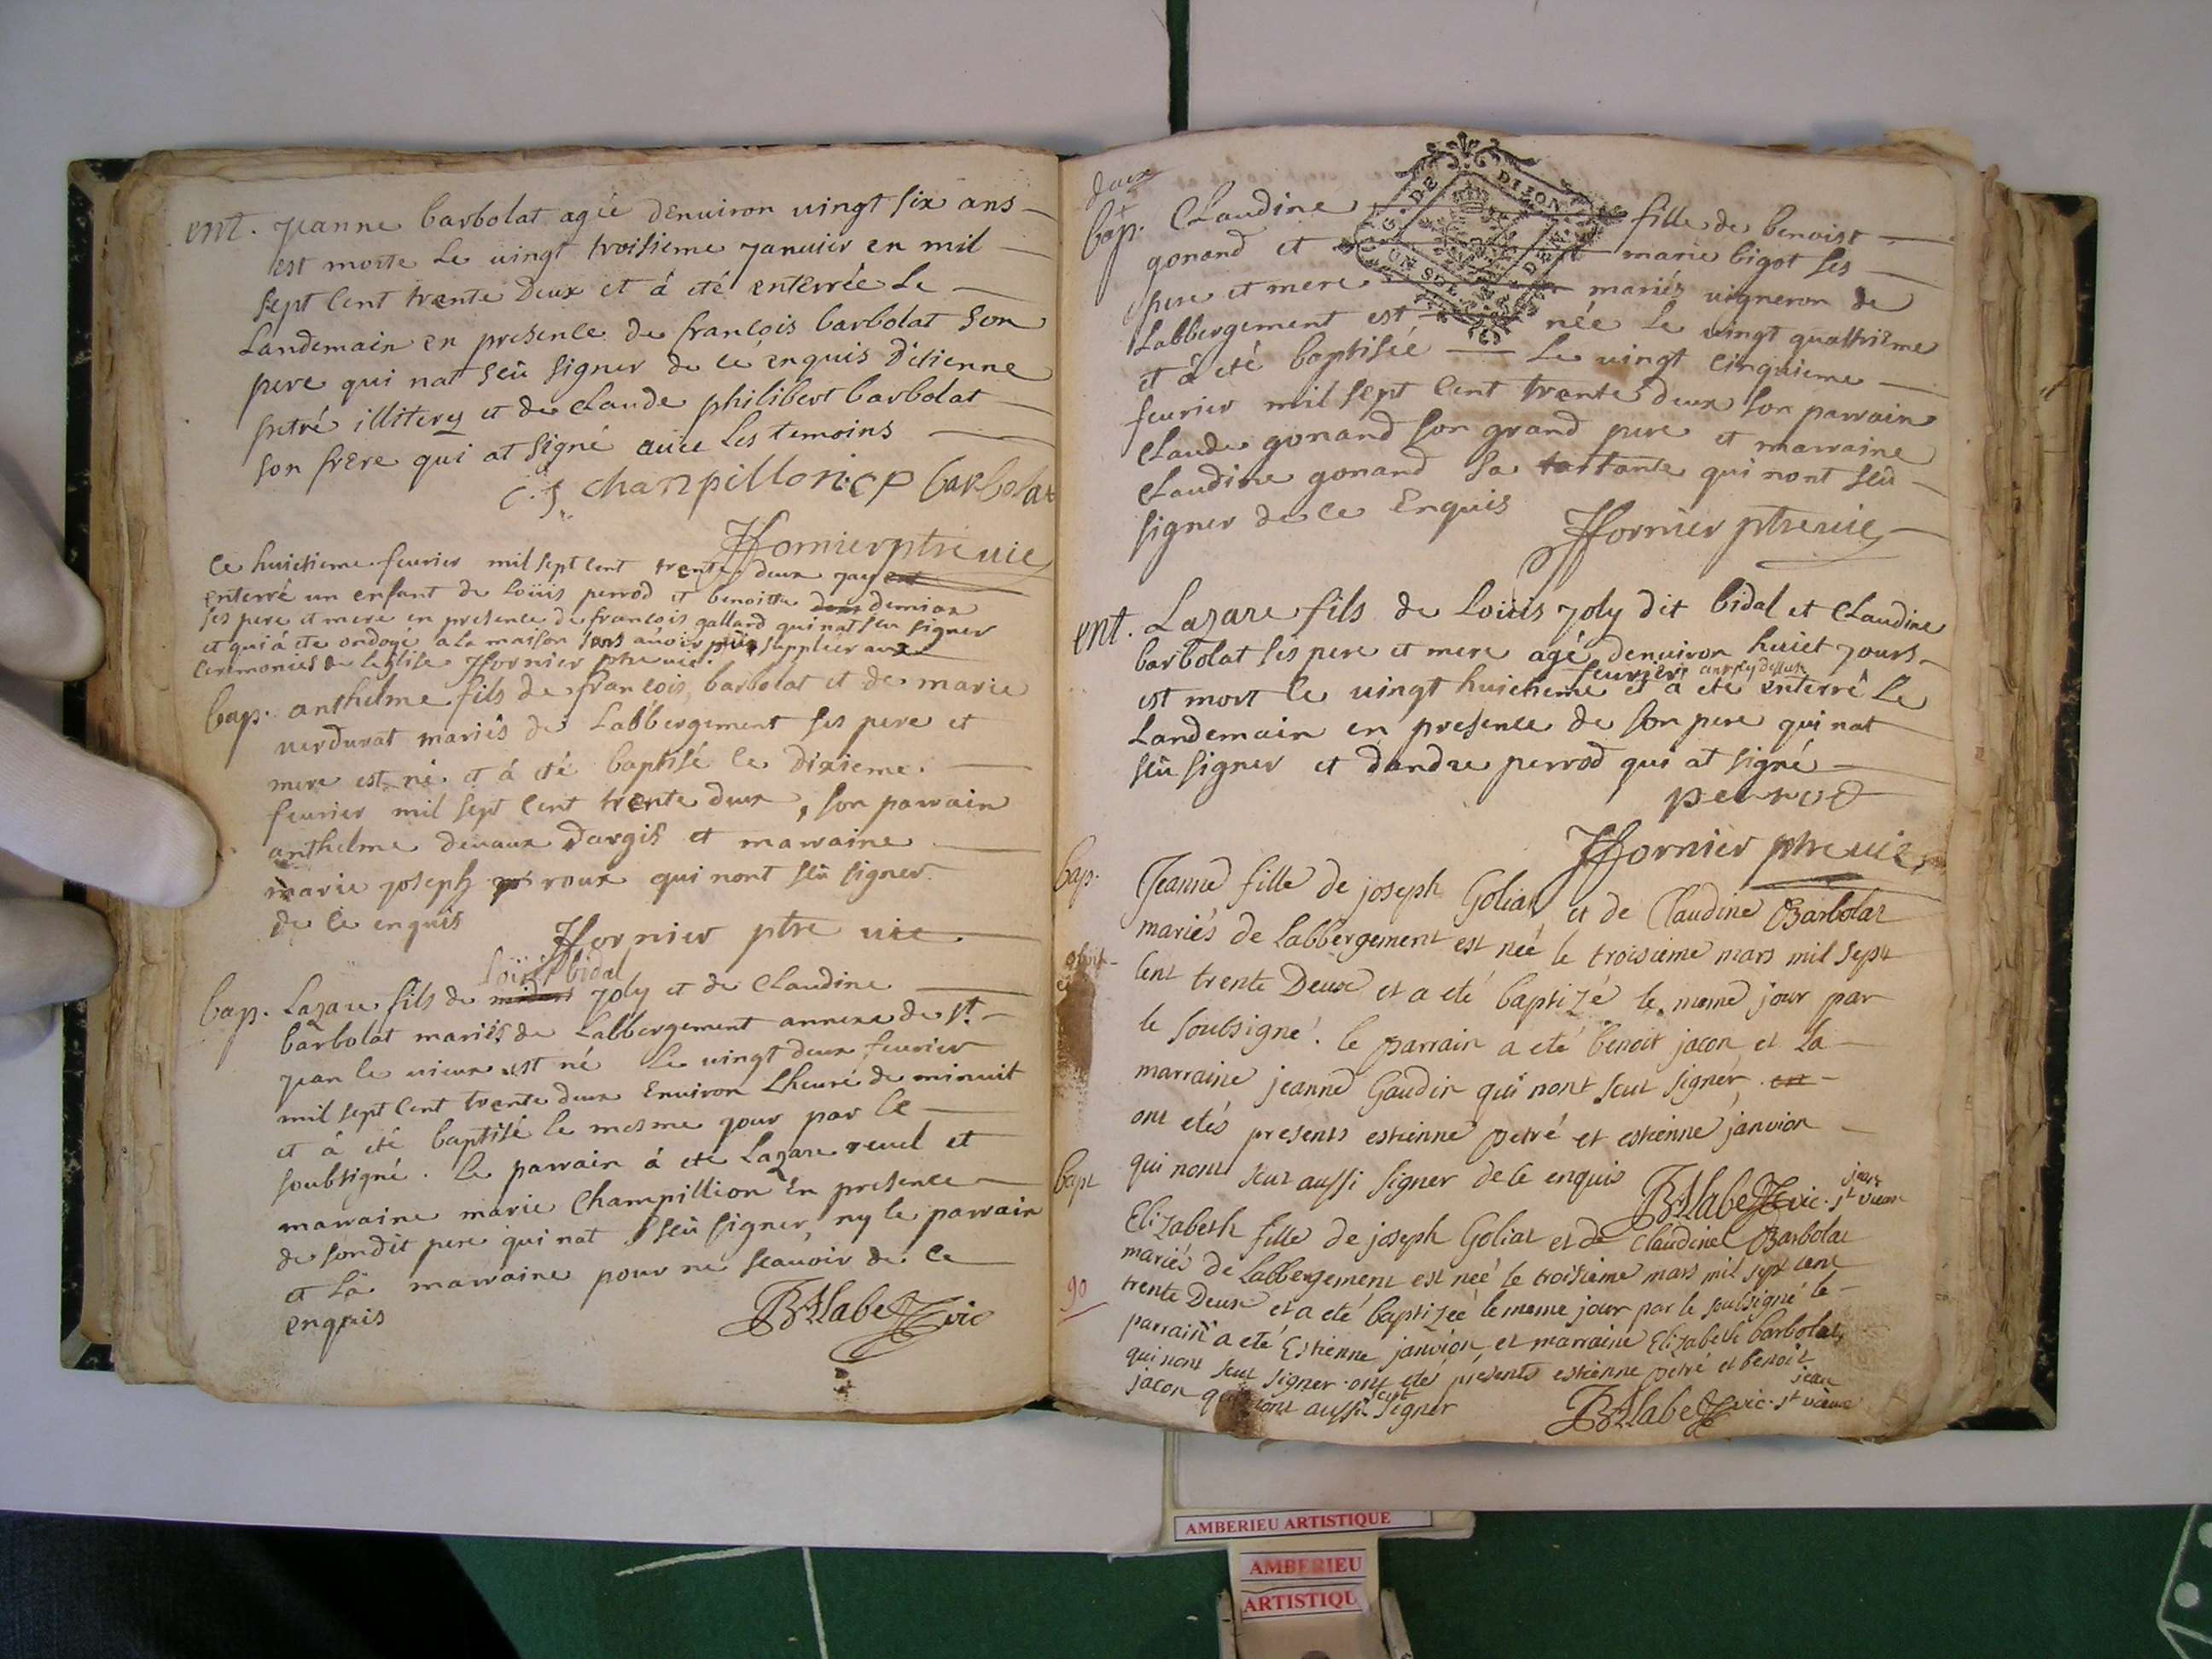 ent. Jeanne barbolat agée denuiron uingt six ans
est morte Le uingt troisieme januier en mil
sept cent trente deux et á eté enterrée Le
Landemain en presence de francois barbolat son
pere qui nat seû signer de ce enquis d'etienne
petré illiterey et de claude philibert barbolat
son frere qui at signé auec Les temoins
chanpillon cp barbolat
JFornier ptre uic
Le huictieme feurier mil sept cent trente deux jay
enterré un enfant de Loüis perrod et benoitte demian
ses pere et mere en presence de francois galland qui nat seu signer
et qui á ete ondoyé a la maison sans auoir suppléér aux
ceremonies de Leglise JFornier ptre uic.
bap. anthelme fils de francois barbolat et de marie
uerdurat mariés de Labbergement ses pere et
mere est né et á eté baptisé le dixieme
feurier mil sept cent trente deux, son parrain
anthelme deuaux dargis et marraine
marie joseph roux qui nont seû signer
de ce enquis
JFornier ptre uic
Loüis bidal
bap. Lazare fils de joly et de Claudine
barbolat mariés de Labbergement annexe de st.
jean le uieux est né Le uingt deux feurier
mil sept cent trente deux Enuiron Lheure de minuit
et á eté baptisé le mesme jour par le
soubsigné. Le parrain á eté Lazare reuel et
marraine marie Champillion En presence
de sondit pere qui nat seû signer, ny le parrain
et La marraine pour ne scauoir de ce
enquis
vic
deux
bap. Claudine fille de benoist
gonand et marie bigot ses
pere et mere mariés uigneron de
Labbergement est née Le uingt quattrieme
et á eté baptiseé Le uingt cinquieme
feurier mil sept cent trente deux son parrain
claude gonand son grand pere et marraine
claudine gonand sa tante qui nont seû
signer de ce Enquis JFornier ptre uic
G. DE DIJON
ent. Lazare fils de Loüis joly dit bidal et Claudine
barbolat ses pere et mere agé denuiron huict jours
feurier
est mort le uingt huictieme et a eté enterré Le
Landemain en presence de son pere qui nat
seû signer et dandre perrod qui at signé
perrod
JFornier ptre uic
bap. Jeanne fille de joseph Goliat et de Claudine Barbolat
mariés de Labbergement est neé le troisieme mars mil sept
cent trente Deux et a eté baptizé le meme jour par
le soubsigné. le parrain a eté benoit jacon et La
marraine jeanne Gaudin qui nont sceut signer
ont etés presents estienne petré et estienne janvion
qui nont sceut aussi signer de ce enquis
vic. st jean vieux
bapt Elizabeth fille de joseph Goliat et de Claudine Barbolat
mariés de Labbergement est neé le troisieme mars mil sept cent
90
trente Deux et a eté baptizeé le meme jour par le soubsigné le
parrain a eté Estienne janvion et marraine Elizabeth barbolat
qui nont sceut signer ont eté présents estienne petré et benoit
jacon qui nont aussi sceut signer
vic. st jean vieux
AMBERIEU ARTISTIQUE
AMBERIEU
ARTISTIQU